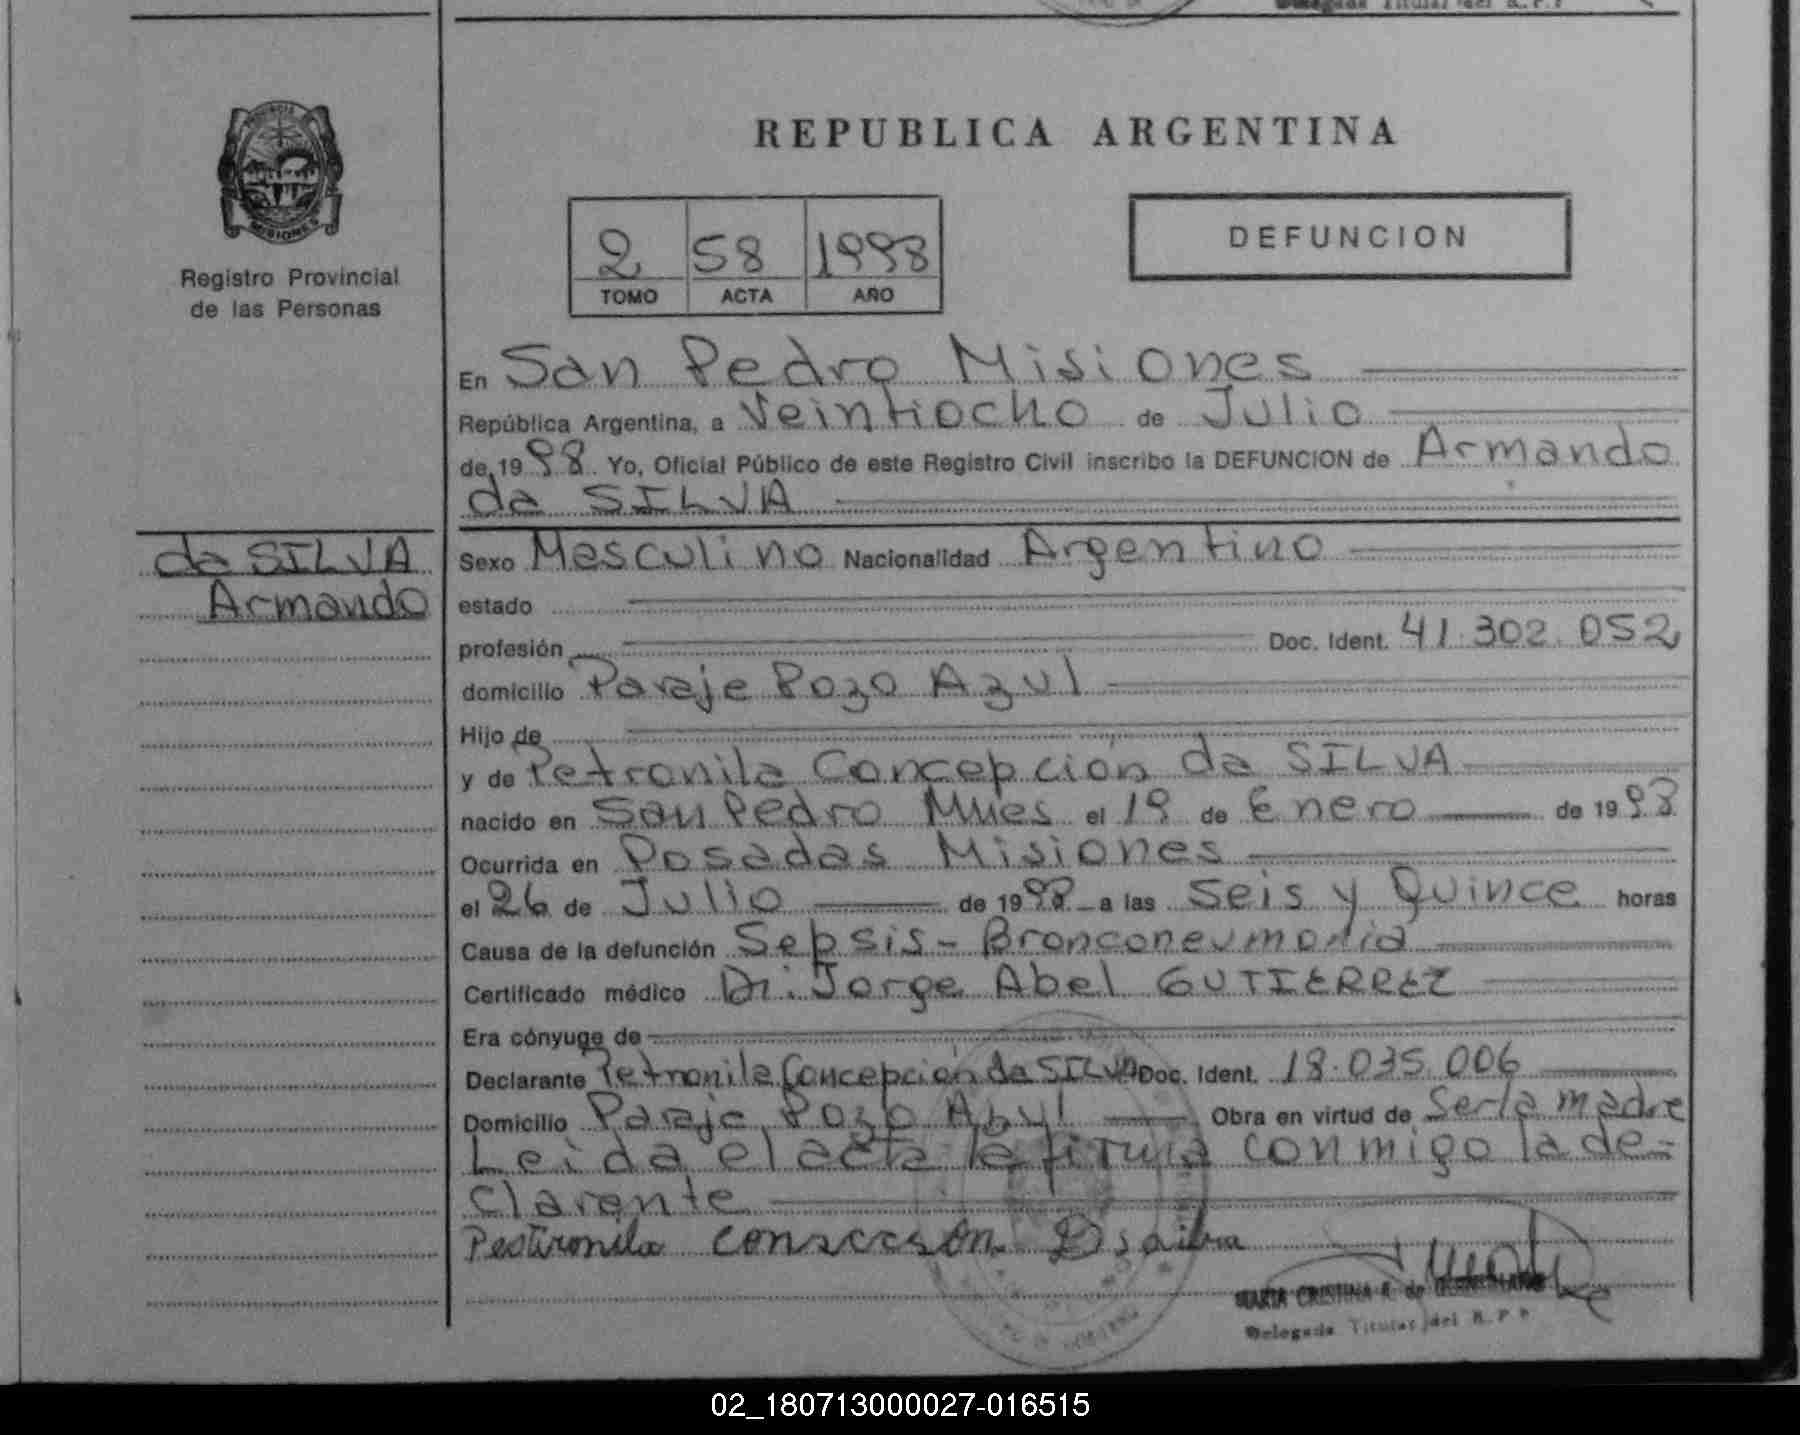 Delegada Titular del R.P.P
PROVINCIA
MISIONES
Registro Provincial
de las Personas
REPUBLICA ARGENTINA
2 58 1998
TOMO ACTA AÑO
DEFUNCION
En San Pedro Misiones
República Argentina, a Veintiocho de Julio
de 1998 Yo, Oficial Público de este Registro Civil inscribo la DEFUNCION de Armando
da SILVA
da SILVA
Armando
Sexo Masculino Nacionalidad Argentino
estado
profesión Doc. Ident. 41.302.052
domicilio Paraje Pozo Azul
Hijo de
y de Petronila Concepción da SILVA
nacido en San Pedro Mnes el 19 de Enero de 1998
Ocurrida en Posadas Misiones
el 26 de Julio de 1998 a las Seis y Quince horas
Causa de la defunción Sepsis - Bronconeumonia
Certificado médico Dr. Jorge Abel GUTIERREZ
Era cónyuge de
Declarante Petronila Concepción da SILVA Doc. Ident. 18.035.006
Domicilio Paraje Pozo Azul Obra en virtud de Ser la madre
Leida el acta la firma conmigo la de-
clarante
MARIA CRISTINA R. de
Delegada Titular del R.P.P
02_180713000027-016515